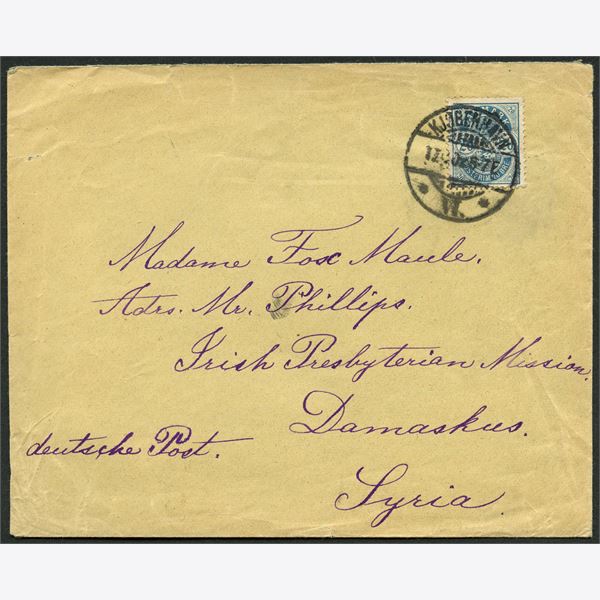 KJØBENHAVN
Madame Fox Maule.
Adrs. Mr. Phillips.
Irish Presbyterian Mission.
Damaskus.
deutsche Post.
Syria.